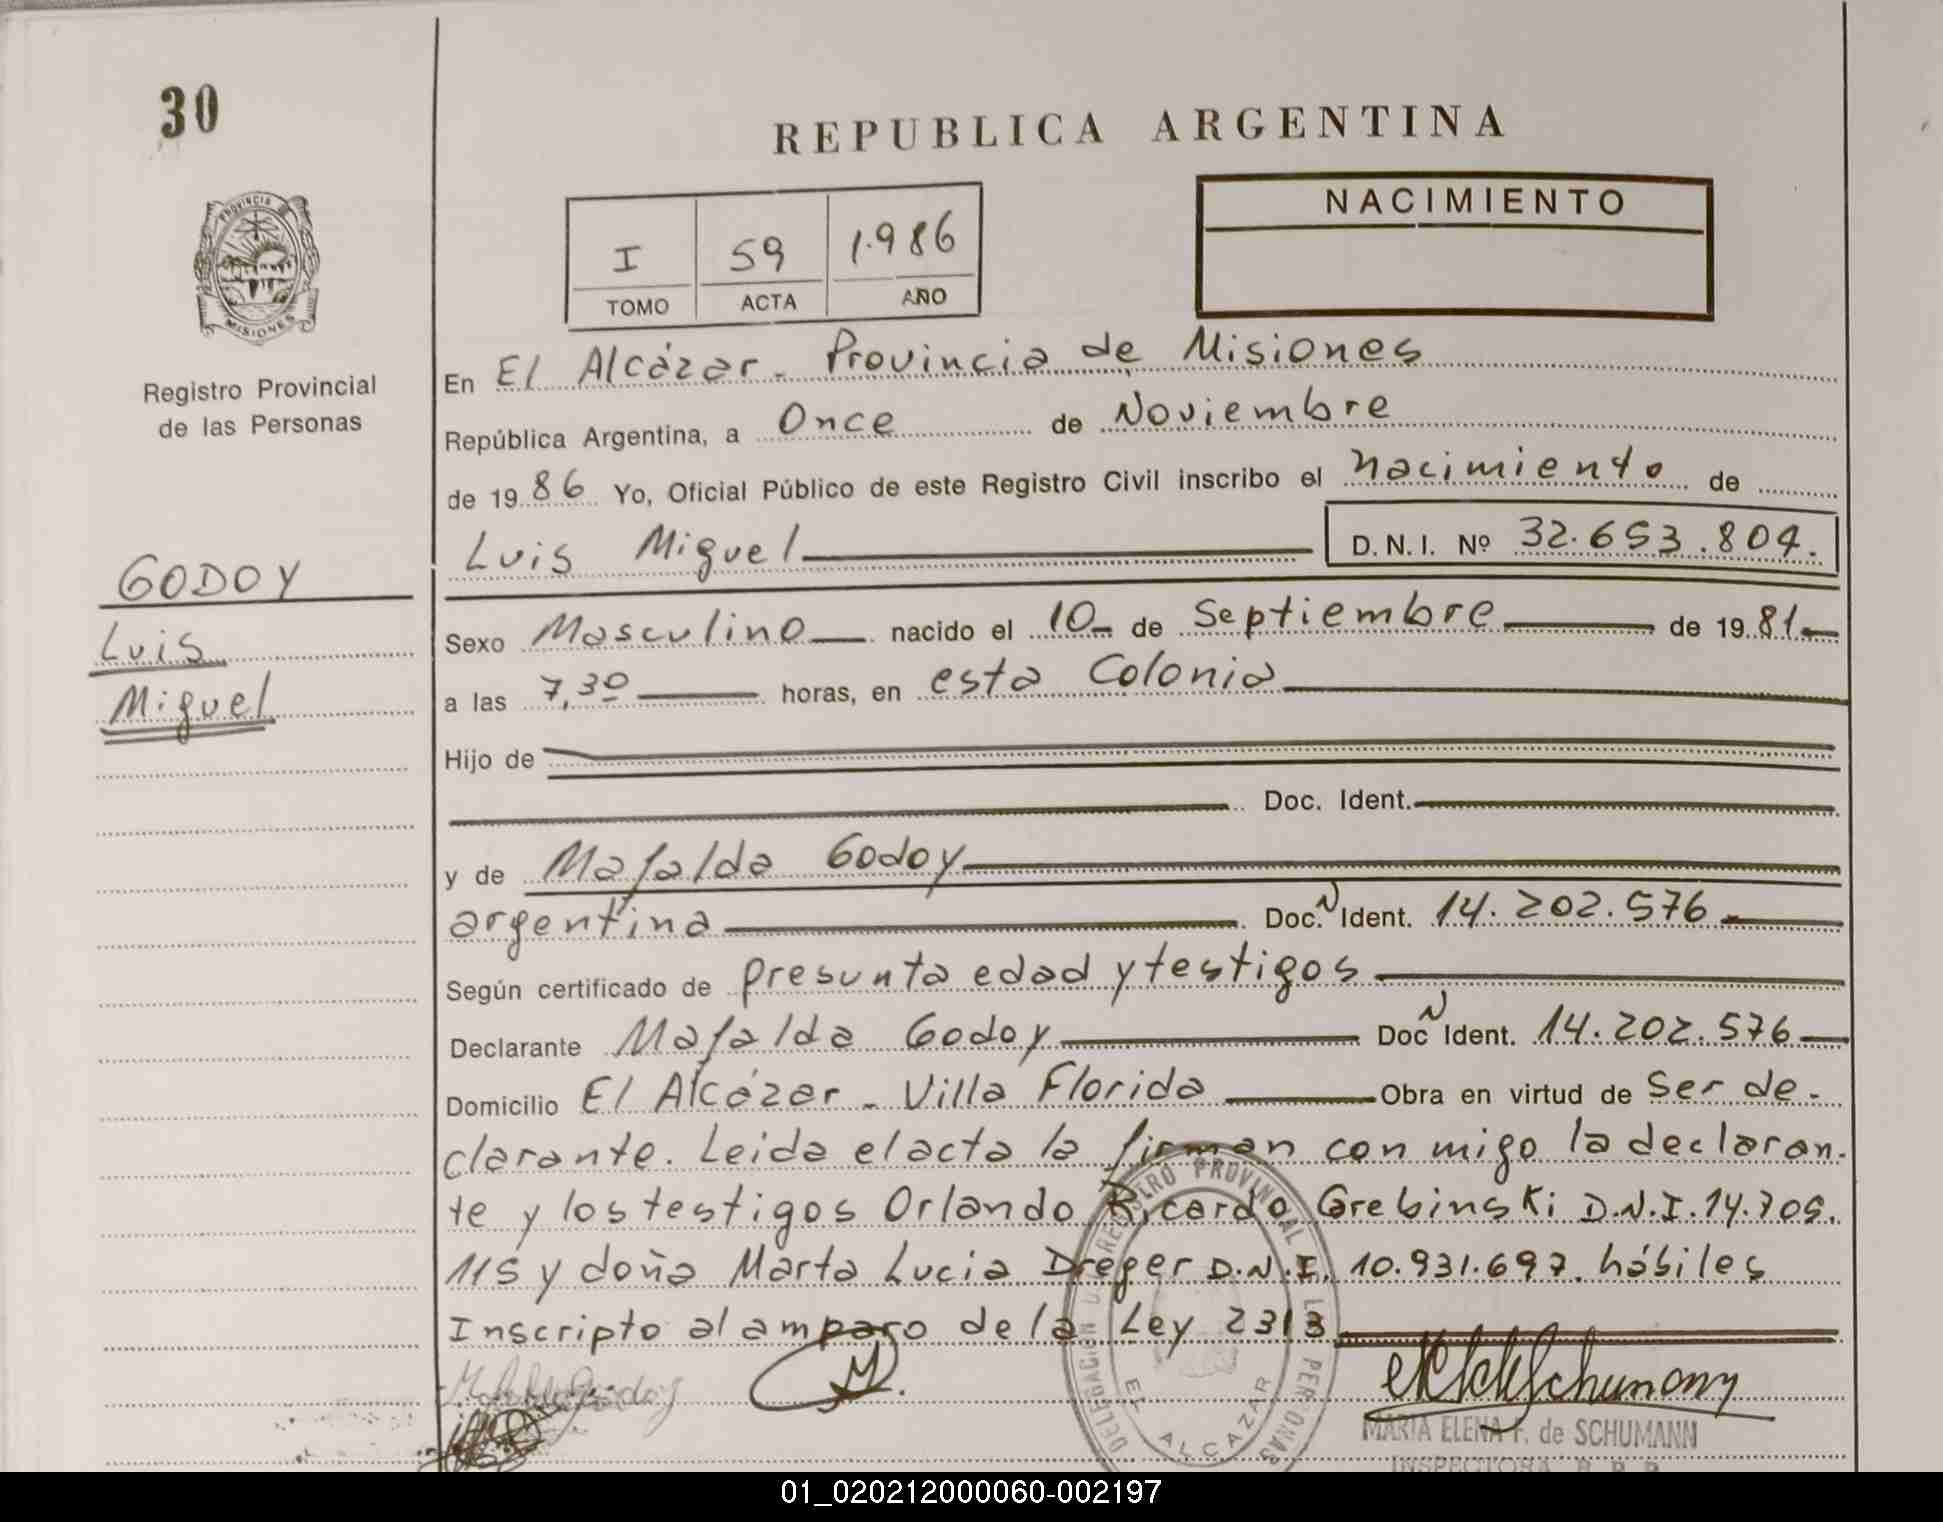 30
REPUBLICA ARGENTINA
NACIMIENTO
I 59 1.986
TOMO ACTA AÑO
PROVINCIA DE
MISIONES
Registro Provincial
de las Personas
En El Alcázar - Provincia de Misiones
República Argentina, a Once de Noviembre
de 1986 Yo, Oficial Público de este Registro Civil inscribo el nacimiento de
Luis Miguel D. N. I. Nº 32.653.804.
GODOY
Luis
Miguel
Sexo Masculino nacido el 10- de Septiembre de 1981
a las 7,30 horas, en esta Colonia
Hijo de
Doc. Ident.
y de Mafalda Godoy
argentina Doc. N Ident. 14.202.576
Según certificado de presunta edad y testigos
Declarante Mafalda Godoy Doc N Ident. 14.202.576
Domicilio El Alcázar - Villa Florida Obra en virtud de Ser de-
clarante. Leida el acta la firman con migo la declaran-
te y los testigos Orlando Ricardo Grebinski D.N.I. 14.709.
115 y doña Marta Lucia Dreger D.N.I. 10.931.697. hábiles
Inscripto al amparo de la Ley 2313
DELEGACION REGISTRO PROVINCIAL PERSONAS
EL ALCAZAR
MARIA ELENA F. de SCHUMANN
INSPECTORA R. R. P.
01_020212000060-002197